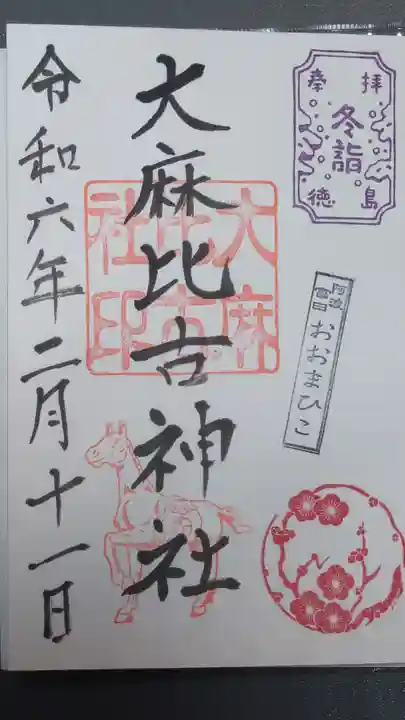 奉拝
冬詣
徳島
阿波
宮日
おおまひこ
大麻比古神社
大麻
比古
社印
令和六年二月十一日